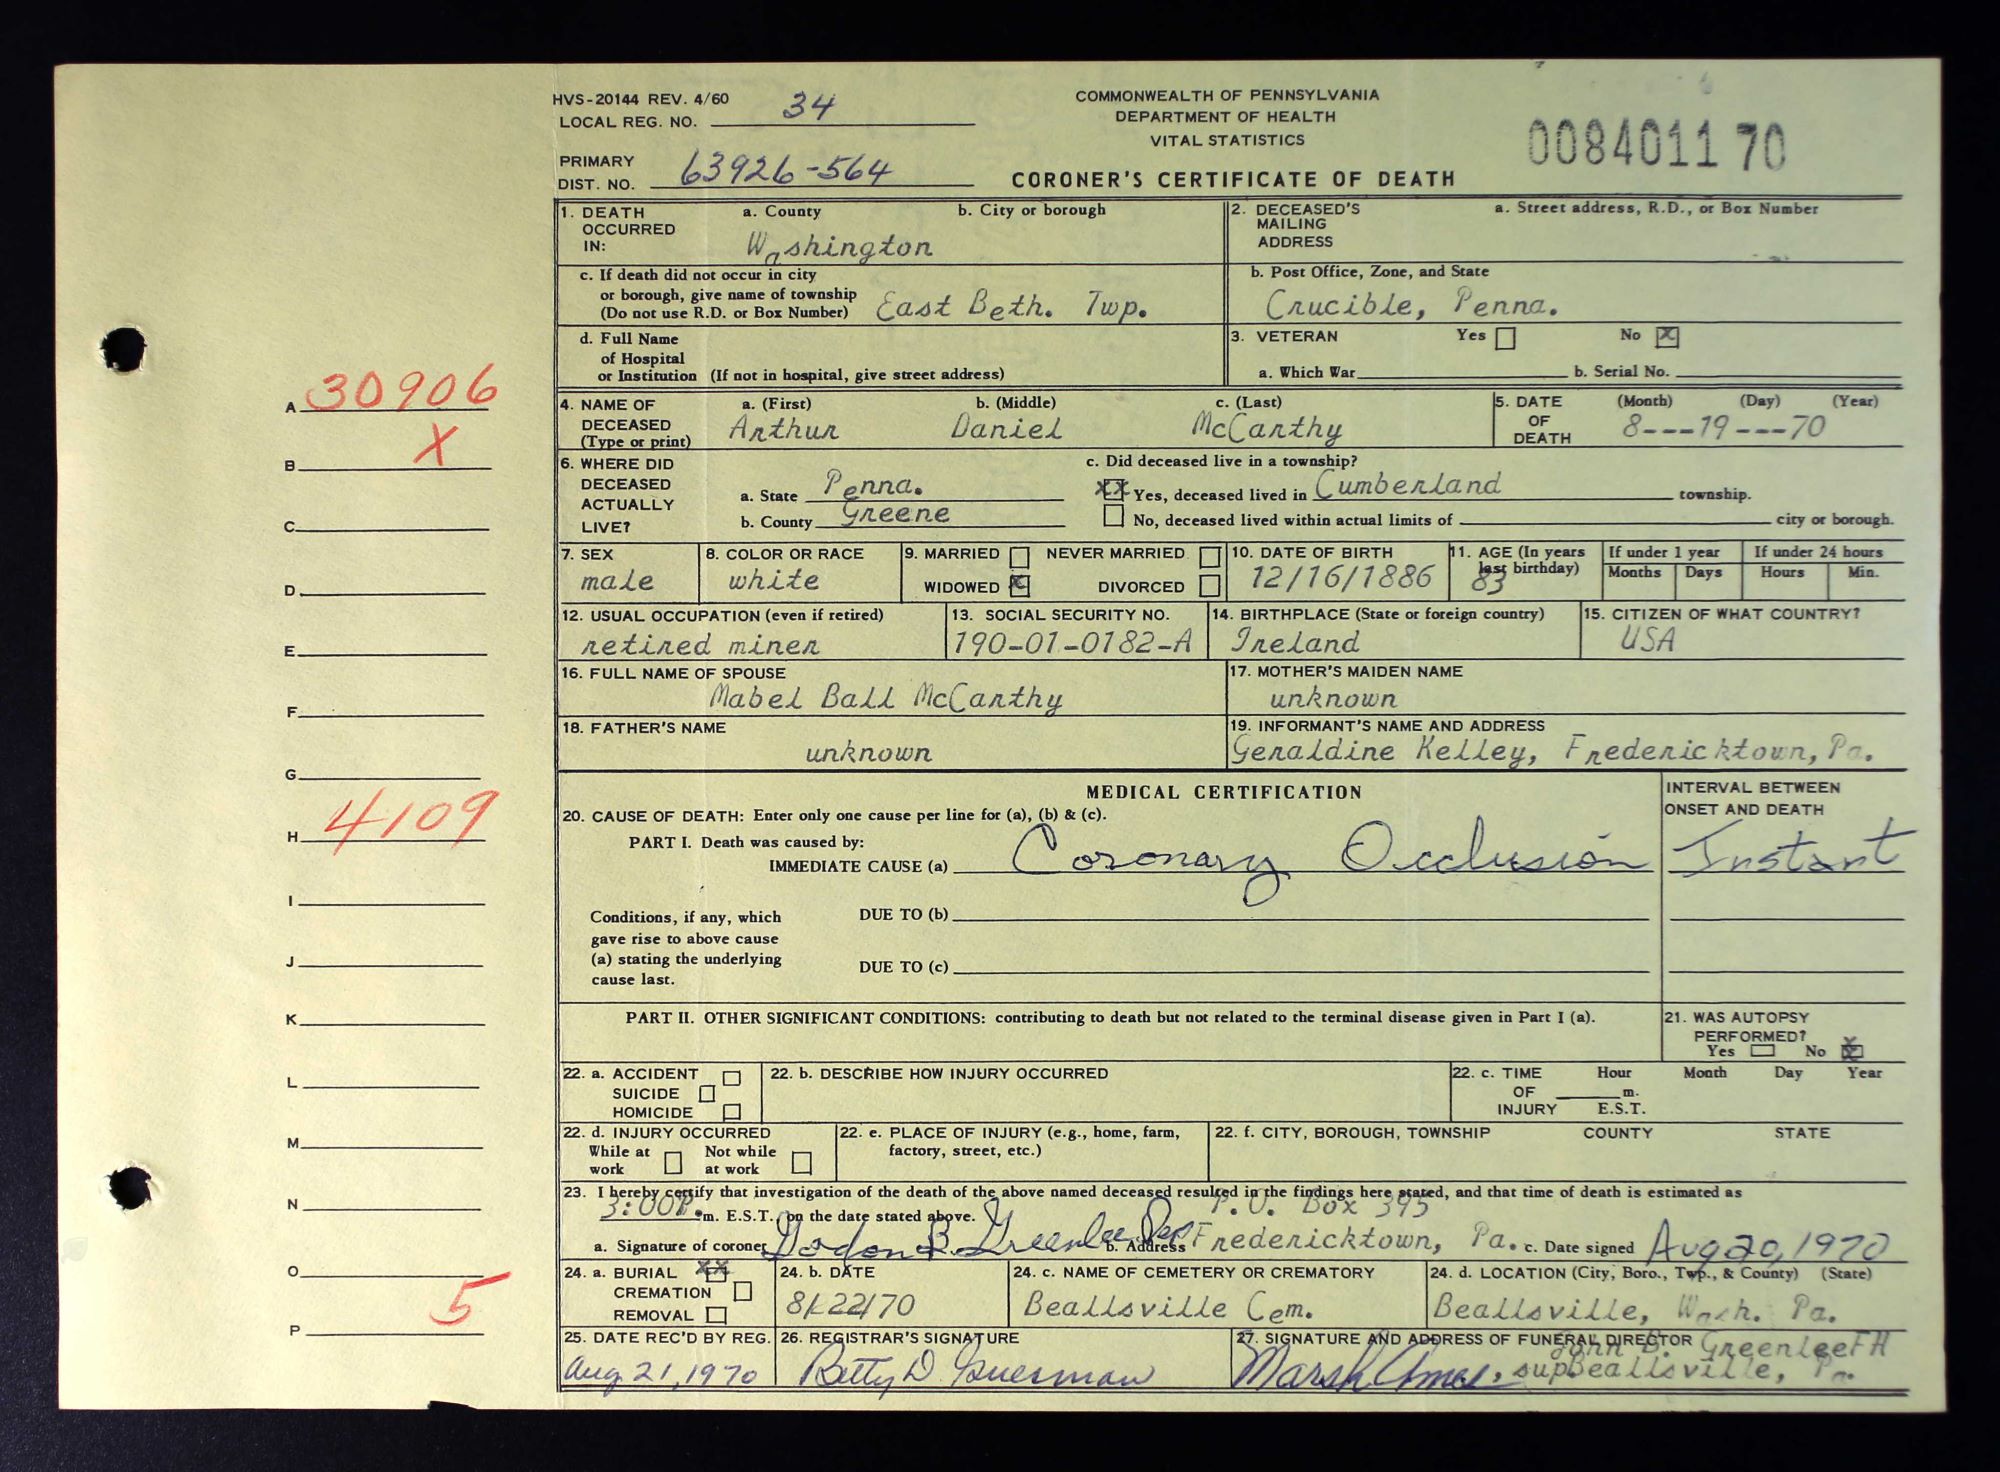 HVS-20144 REV. 4/60
LOCAL REG. NO. 34
PRIMARY
DIST. NO. 63926-564
COMMONWEALTH OF PENNSYLVANIA
DEPARTMENT OF HEALTH
VITAL STATISTICS
CORONER'S CERTIFICATE OF DEATH
0084011 70
1. DEATH OCCURRED IN: a. County b. City or borough
Washington
c. If death did not occur in city
or borough, give name of township
(Do not use R.D. or Box Number) East Beth. Twp.
d. Full Name
of Hospital
or Institution (If not in hospital, give street address)
2. DECEASED'S MAILING ADDRESS a. Street address, R.D., or Box Number
b. Post Office, Zone, and State
Crucible, Penna.
3. VETERAN Yes No X
a. Which War b. Serial No.
4. NAME OF DECEASED (Type or print) a. (First) b. (Middle) c. (Last)
Arthur Daniel McCarthy
5. DATE OF DEATH (Month) (Day) (Year)
8---19---70
6. WHERE DID DECEASED ACTUALLY LIVE?
a. State Penna.
b. County Greene
c. Did deceased live in a township?
XX Yes, deceased lived in Cumberland township.
No, deceased lived within actual limits of city or borough.
7. SEX
male
8. COLOR OR RACE
white
9. MARRIED NEVER MARRIED
WIDOWED X DIVORCED
10. DATE OF BIRTH
12/16/1886
11. AGE (In years last birthday)
83
If under 1 year
Months Days
If under 24 hours
Hours Min.
12. USUAL OCCUPATION (even if retired)
retired miner
13. SOCIAL SECURITY NO.
190-01-0182-A
14. BIRTHPLACE (State or foreign country)
Ireland
15. CITIZEN OF WHAT COUNTRY?
USA
16. FULL NAME OF SPOUSE
Mabel Ball McCarthy
17. MOTHER'S MAIDEN NAME
unknown
18. FATHER'S NAME
unknown
19. INFORMANT'S NAME AND ADDRESS
Geraldine Kelley, Fredericktown, Pa.
MEDICAL CERTIFICATION
INTERVAL BETWEEN
ONSET AND DEATH
20. CAUSE OF DEATH: Enter only one cause per line for (a), (b) & (c).
PART I. Death was caused by:
IMMEDIATE CAUSE (a) Coronary Occlusion Instant
Conditions, if any, which
gave rise to above cause
(a) stating the underlying
cause last.
DUE TO (b)
DUE TO (c)
PART II. OTHER SIGNIFICANT CONDITIONS: contributing to death but not related to the terminal disease given in Part I (a).
21. WAS AUTOPSY
PERFORMED?
Yes No X
22. a. ACCIDENT
SUICIDE
HOMICIDE
22. b. DESCRIBE HOW INJURY OCCURRED
22. c. TIME OF INJURY Hour Month Day Year
m.
E.S.T.
22. d. INJURY OCCURRED
While at work Not while at work
22. e. PLACE OF INJURY (e.g., home, farm,
factory, street, etc.)
22. f. CITY, BOROUGH, TOWNSHIP COUNTY STATE
23. I hereby certify that investigation of the death of the above named deceased resulted in the findings here stated, and that time of death is estimated as
3:00P.m. E.S.T. on the date stated above. P.O. Box 395
a. Signature of coroner Gordon B. Greenlee Dep b. Address Fredericktown, Pa. c. Date signed Aug 20, 1970
24. a. BURIAL XX
CREMATION
REMOVAL
24. b. DATE
8/22/70
24. c. NAME OF CEMETERY OR CREMATORY
Beallsville Cem.
24. d. LOCATION (City, Boro., Twp., & County) (State)
Beallsville, Wash. Pa.
25. DATE REC'D BY REG.
Aug 21, 1970
26. REGISTRAR'S SIGNATURE
Betty D.
27. SIGNATURE AND ADDRESS OF FUNERAL DIRECTOR
John B. Greenlee FH
Marsh , sup Beallsville, Pa.
A 30906
B X
C
D
E
F
G
H 4109
I
J
K
L
M
N
O
P 5